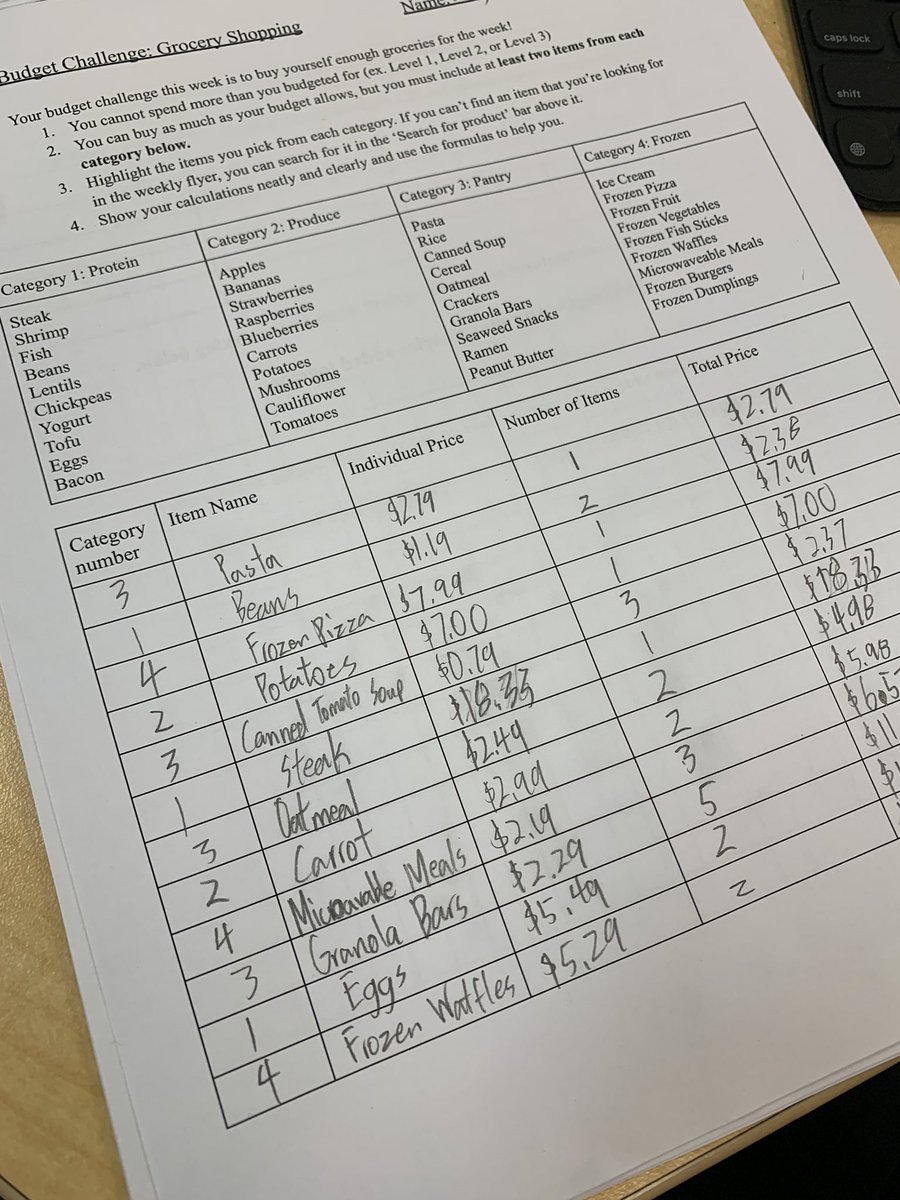 Name:
Budget Challenge: Grocery Shopping
Your budget challenge this week is to buy yourself enough groceries for the week!
1. You cannot spend more than you budgeted for (ex. Level 1, Level 2, or Level 3)
2. You can buy as much as your budget allows, but you must include at least two items from each
category below.
3. Highlight the items you pick from each category. If you can't find an item that you're looking for
in the weekly flyer, you can search for it in the 'Search for product' bar above it.
4. Show your calculations neatly and clearly and use the formulas to help you.
Category 1: Protein
Steak
Shrimp
Fish
Beans
Lentils
Chickpeas
Yogurt
Tofu
Eggs
Bacon
Category 2: Produce
Apples
Bananas
Strawberries
Raspberries
Blueberries
Carrots
Potatoes
Mushrooms
Cauliflower
Tomatoes
Category 3: Pantry
Pasta
Rice
Canned Soup
Cereal
Oatmeal
Crackers
Granola Bars
Seaweed Snacks
Ramen
Peanut Butter
Category 4: Frozen
Ice Cream
Frozen Pizza
Frozen Fruit
Frozen Vegetables
Frozen Fish Sticks
Frozen Waffles
Microwaveable Meals
Frozen Burgers
Frozen Dumplings
Category number Item Name Individual Price Number of Items Total Price
3 Pasta $2.79 1 $2.79
1 Beans $1.19 2 $2.38
4 Frozen Pizza $7.99 1 $7.99
2 Potatoes $7.00 1 $7.00
3 Canned Tomato Soup $0.79 3 $2.37
1 Steak $18.33 1 $18.33
3 Oatmeal $2.49 2 $4.98
2 Carrot $2.99 2 $5.98
4 Microavable Meals $2.19 3 $6.5
3 Granola Bars $2.29 5 $11
1 Eggs $5.49 2 $
4 Frozen Waffles $5.29 2
caps lock
shift